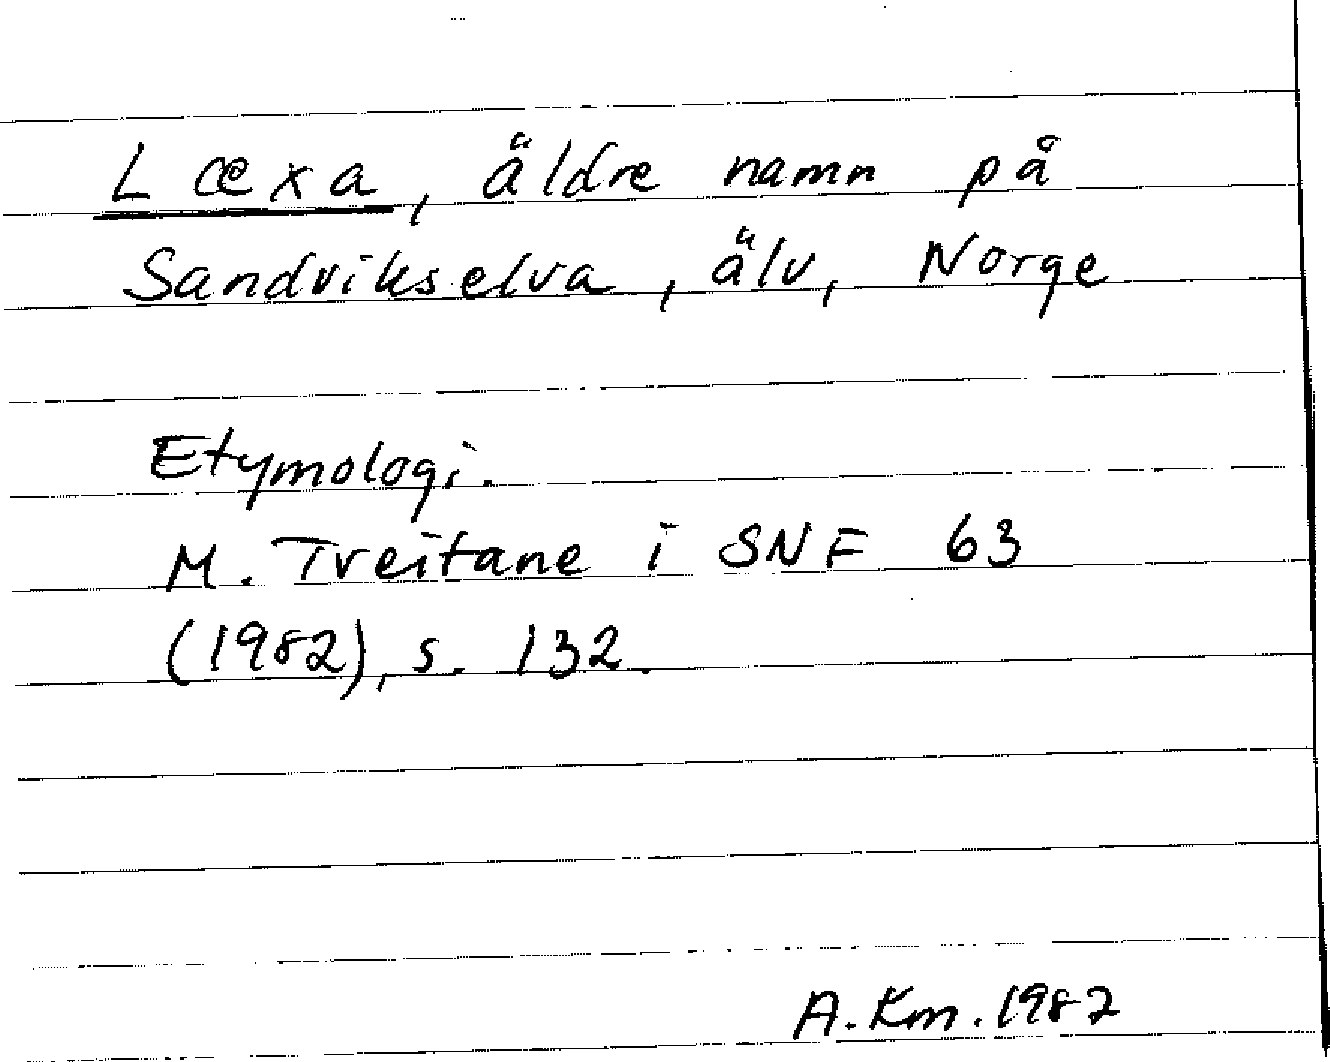 Læxa, äldre namn på
Sandvikselva, älv, Norge
Etymologi.
M. Tveitane i SNF 63
(1982), s. 132.
A. Km. 1987